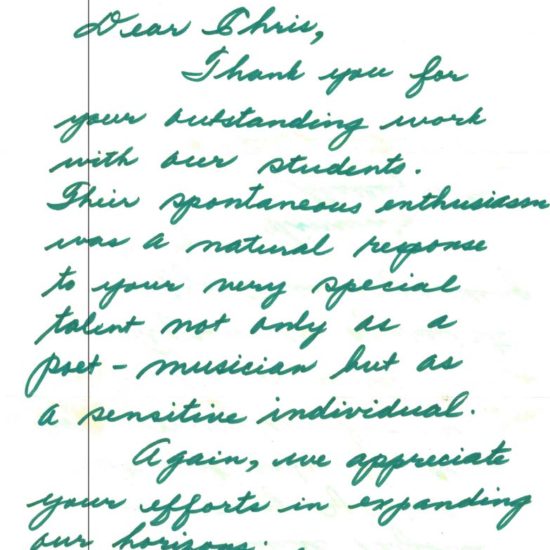 Dear Chris,
Thank you for
your outstanding work
with our students.
Their spontaneous enthusiasm
was a natural response
to your very special
talent not only as a
poet - musician but as
a sensitive individual.
Again, we appreciate
your efforts in expanding
our horizons.